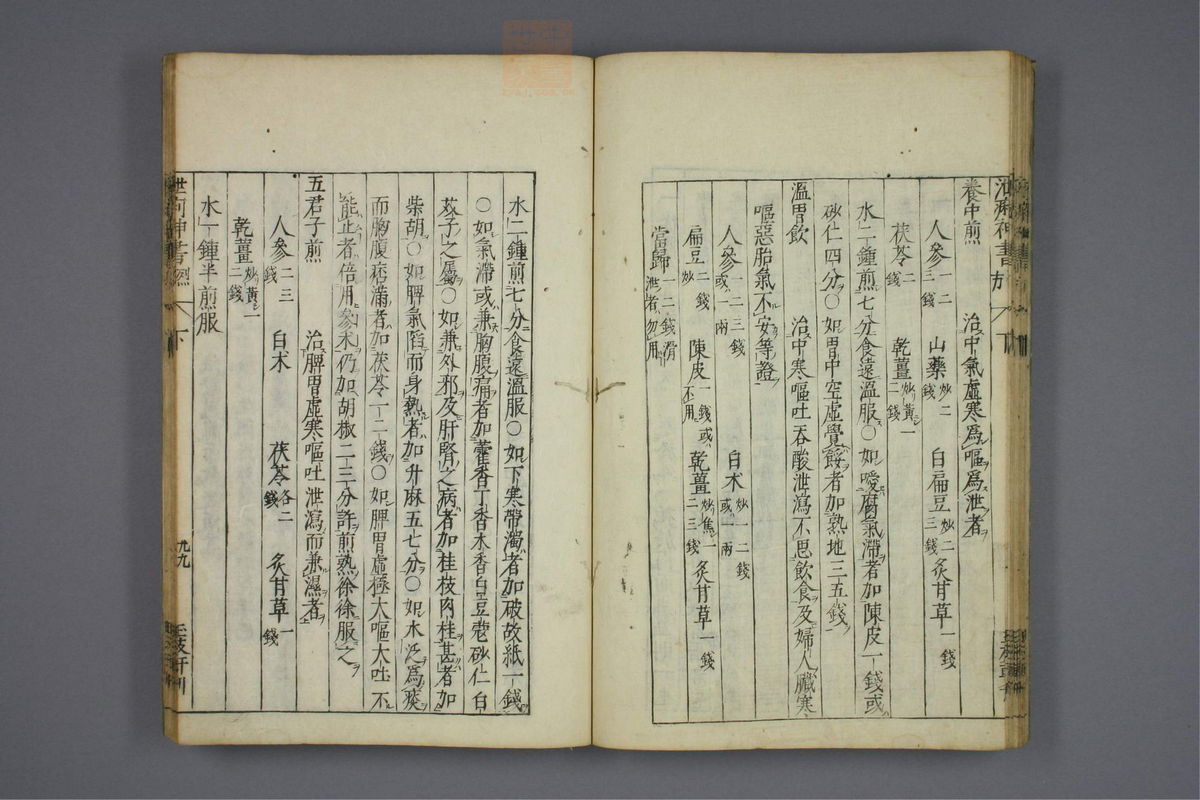 養中煎　治中氣虛寒爲嘔爲泄者
人參一二三錢　山藥炒二錢　白扁豆炒二三錢　炙甘草一錢
茯苓二錢　乾薑炒黃一二錢
水二鍾煎七分食遠溫服○如噯腐氣滯者加陳皮一錢或
砂仁四分○如胃中空虛覺餒者加熟地三五錢
溫胃飲　治中寒嘔吐吞酸泄瀉不思飲食及婦人臟寒
嘔惡胎氣不安等證
人參一二三錢或一兩　白朮炒一二錢或一兩
扁豆二錢炒　陳皮一錢或不用　乾薑炒焦一二三錢　炙甘草一錢
當歸一二錢滑泄者勿用
水二鍾煎七分食遠溫服○如下寒帶濁者加破故紙一錢
○如氣滯或兼胸腹痛者加藿香丁香木香白豆蔲砂仁白
芥子之屬○如兼外邪及肝腎之病者加桂枝肉桂甚者加
柴胡○如脾氣陷而身熱者加升麻五七分○如水泛爲痰
而胸腹痞滿者加茯苓一二錢○如脾胃虛極大嘔大吐不
能止者倍用參朮仍加胡椒二三分許煎熟徐徐服之
五君子煎　治脾胃虛寒嘔吐泄瀉而兼濕者
人參二三錢　白朮　茯苓各二錢　炙甘草一錢
乾薑炒黃一二錢
水一鍾半煎服